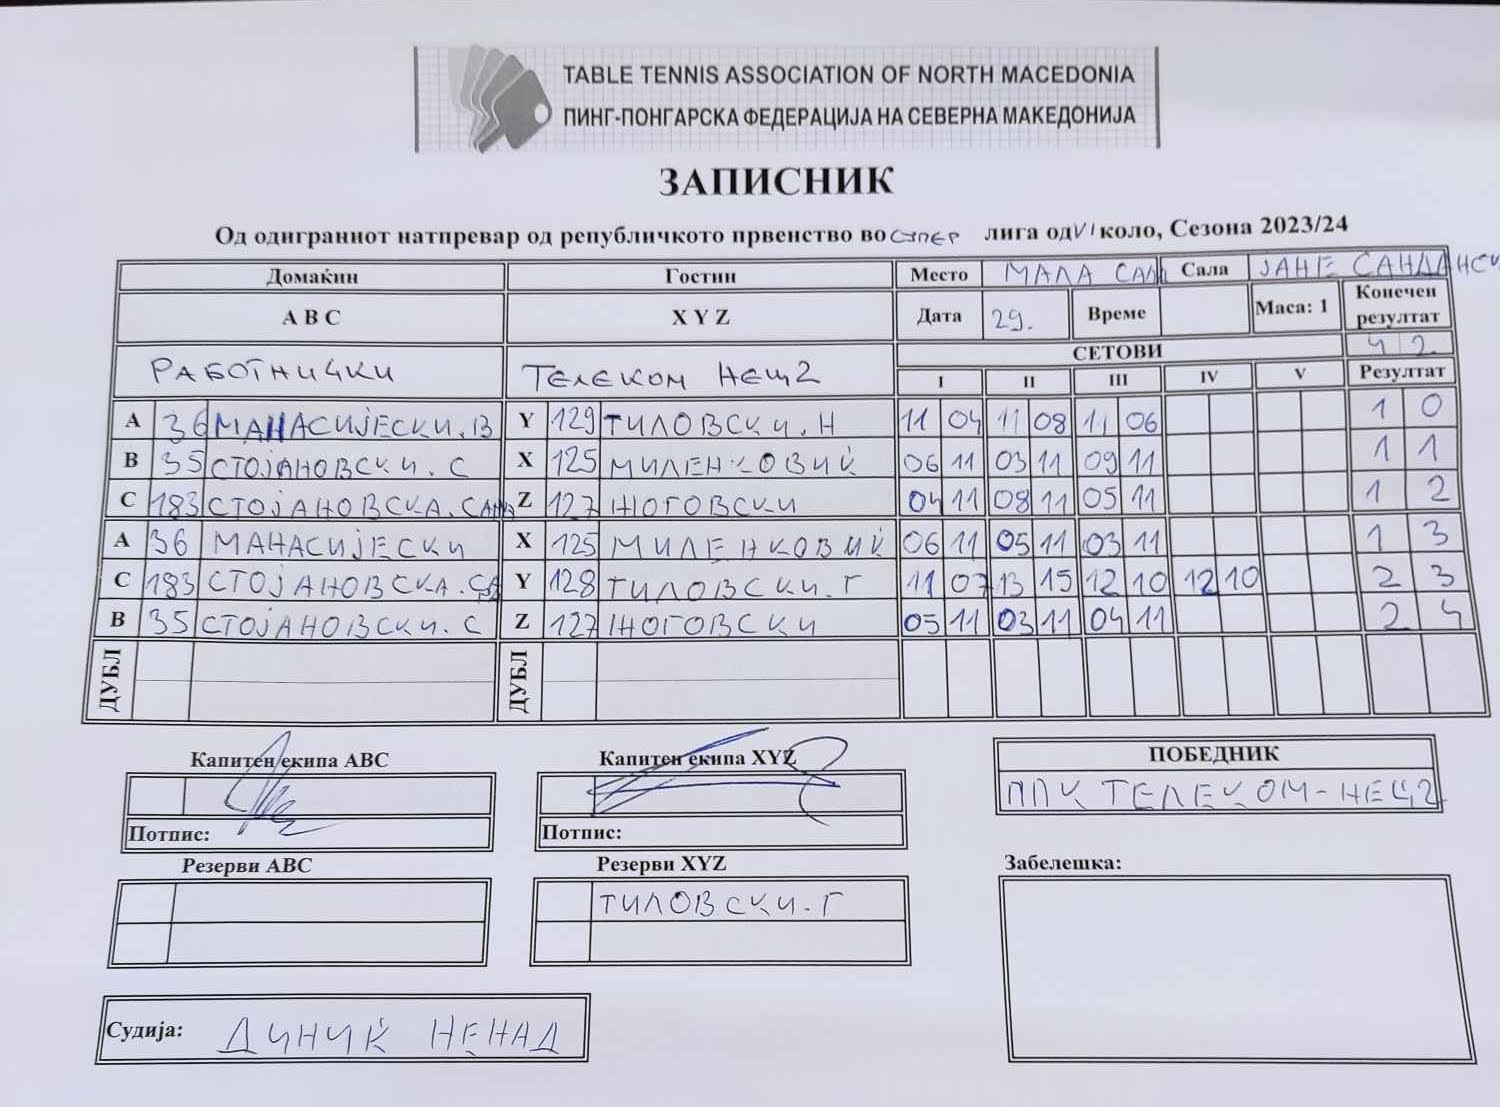 TABLE TENNIS ASSOCIATION OF NORTH MACEDONIA
ПИНГ-ПОНГАРСКА ФЕДЕРАЦИЈА НА СЕВЕРНА МАКЕДОНИЈА
ЗАПИСНИК
Од одиграниот натпревар од републичкото првенство во СУПЕР лига од VI коло, Сезона 2023/24
Домаќин Гостин Место МАЛА САЛА Сала ЈАНЕ САНДАНСКИ
A B C X Y Z Дата 29. Време Маса: 1 Конечен резултат
РАБОТНИЧКИ ТЕЛЕКОМ НЕЦ2 СЕТОВИ 4 2
I II III IV V Резултат
A 36 МАНАСИЈЕСКИ.В Y 129 ТИЛОВСКИ.Н 11 04 11 08 11 06 1 0
B 35 СТОЈАНОВСКИ.С X 125 МИЛЕНКОВИЌ 06 11 03 11 09 11 1 1
C 183 СТОЈАНОВСКА.САЊА Z 127 ЊОГОВСКИ 04 11 08 11 05 11 1 2
A 36 МАНАСИЈЕСКИ X 125 МИЛЕНКОВИЌ 06 11 05 11 03 11 1 3
C 183 СТОЈАНОВСКА. Y 128 ТИЛОВСКИ.Г 11 07 13 15 12 10 12 10 2 3
B 35 СТОЈАНОВСКИ.С Z 127 ЊОГОВСКИ 05 11 03 11 04 11 2 4
ДУБЛ ДУБЛ
Капитен екипа ABC Капитен екипа XYZ ПОБЕДНИК
ППК ТЕЛЕКОМ-НЕЦ2
Потпис: Потпис:
Резерви ABC Резерви XYZ Забелешка:
ТИЛОВСКИ.Г
Судија: ДИНИЌ НЕНАД